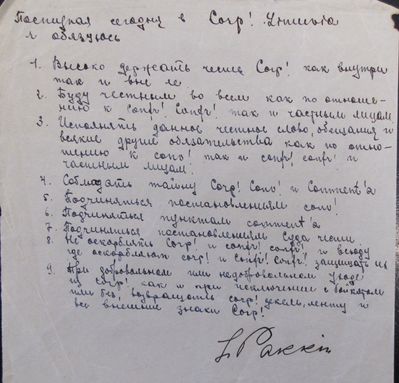 Поступая сегодня в Corp! Ethicola
я обязуюсь
1. Высоко держать честь Corp! как внутри
так и вне ее
2. Буду честным во всем как по отноше-
нию к Confr! Confr! так и частным лицам
3. Исполнять данное честное слово, обещания и
всякие другие обязательства как по отно-
шению к conv! так и confr! confr! и
частным лицам.
4. Соблюдать тайну Corp! Conv! и Comment'a
5. Подчиняться постановлениям conv!
6. Подчиняться пунктам comment'a
7. Подчиняться постановлениям суда чести
8. Не оскорблять Corp! и confr! confr! и всюду
где оскорбляют corp! и confr! confr! защищать их
9. При добровольном или недобровольном уходе
из Corp! как и при исключении с
или без, возвратить corp! декель, ленту и
все внешние знаки Corp!